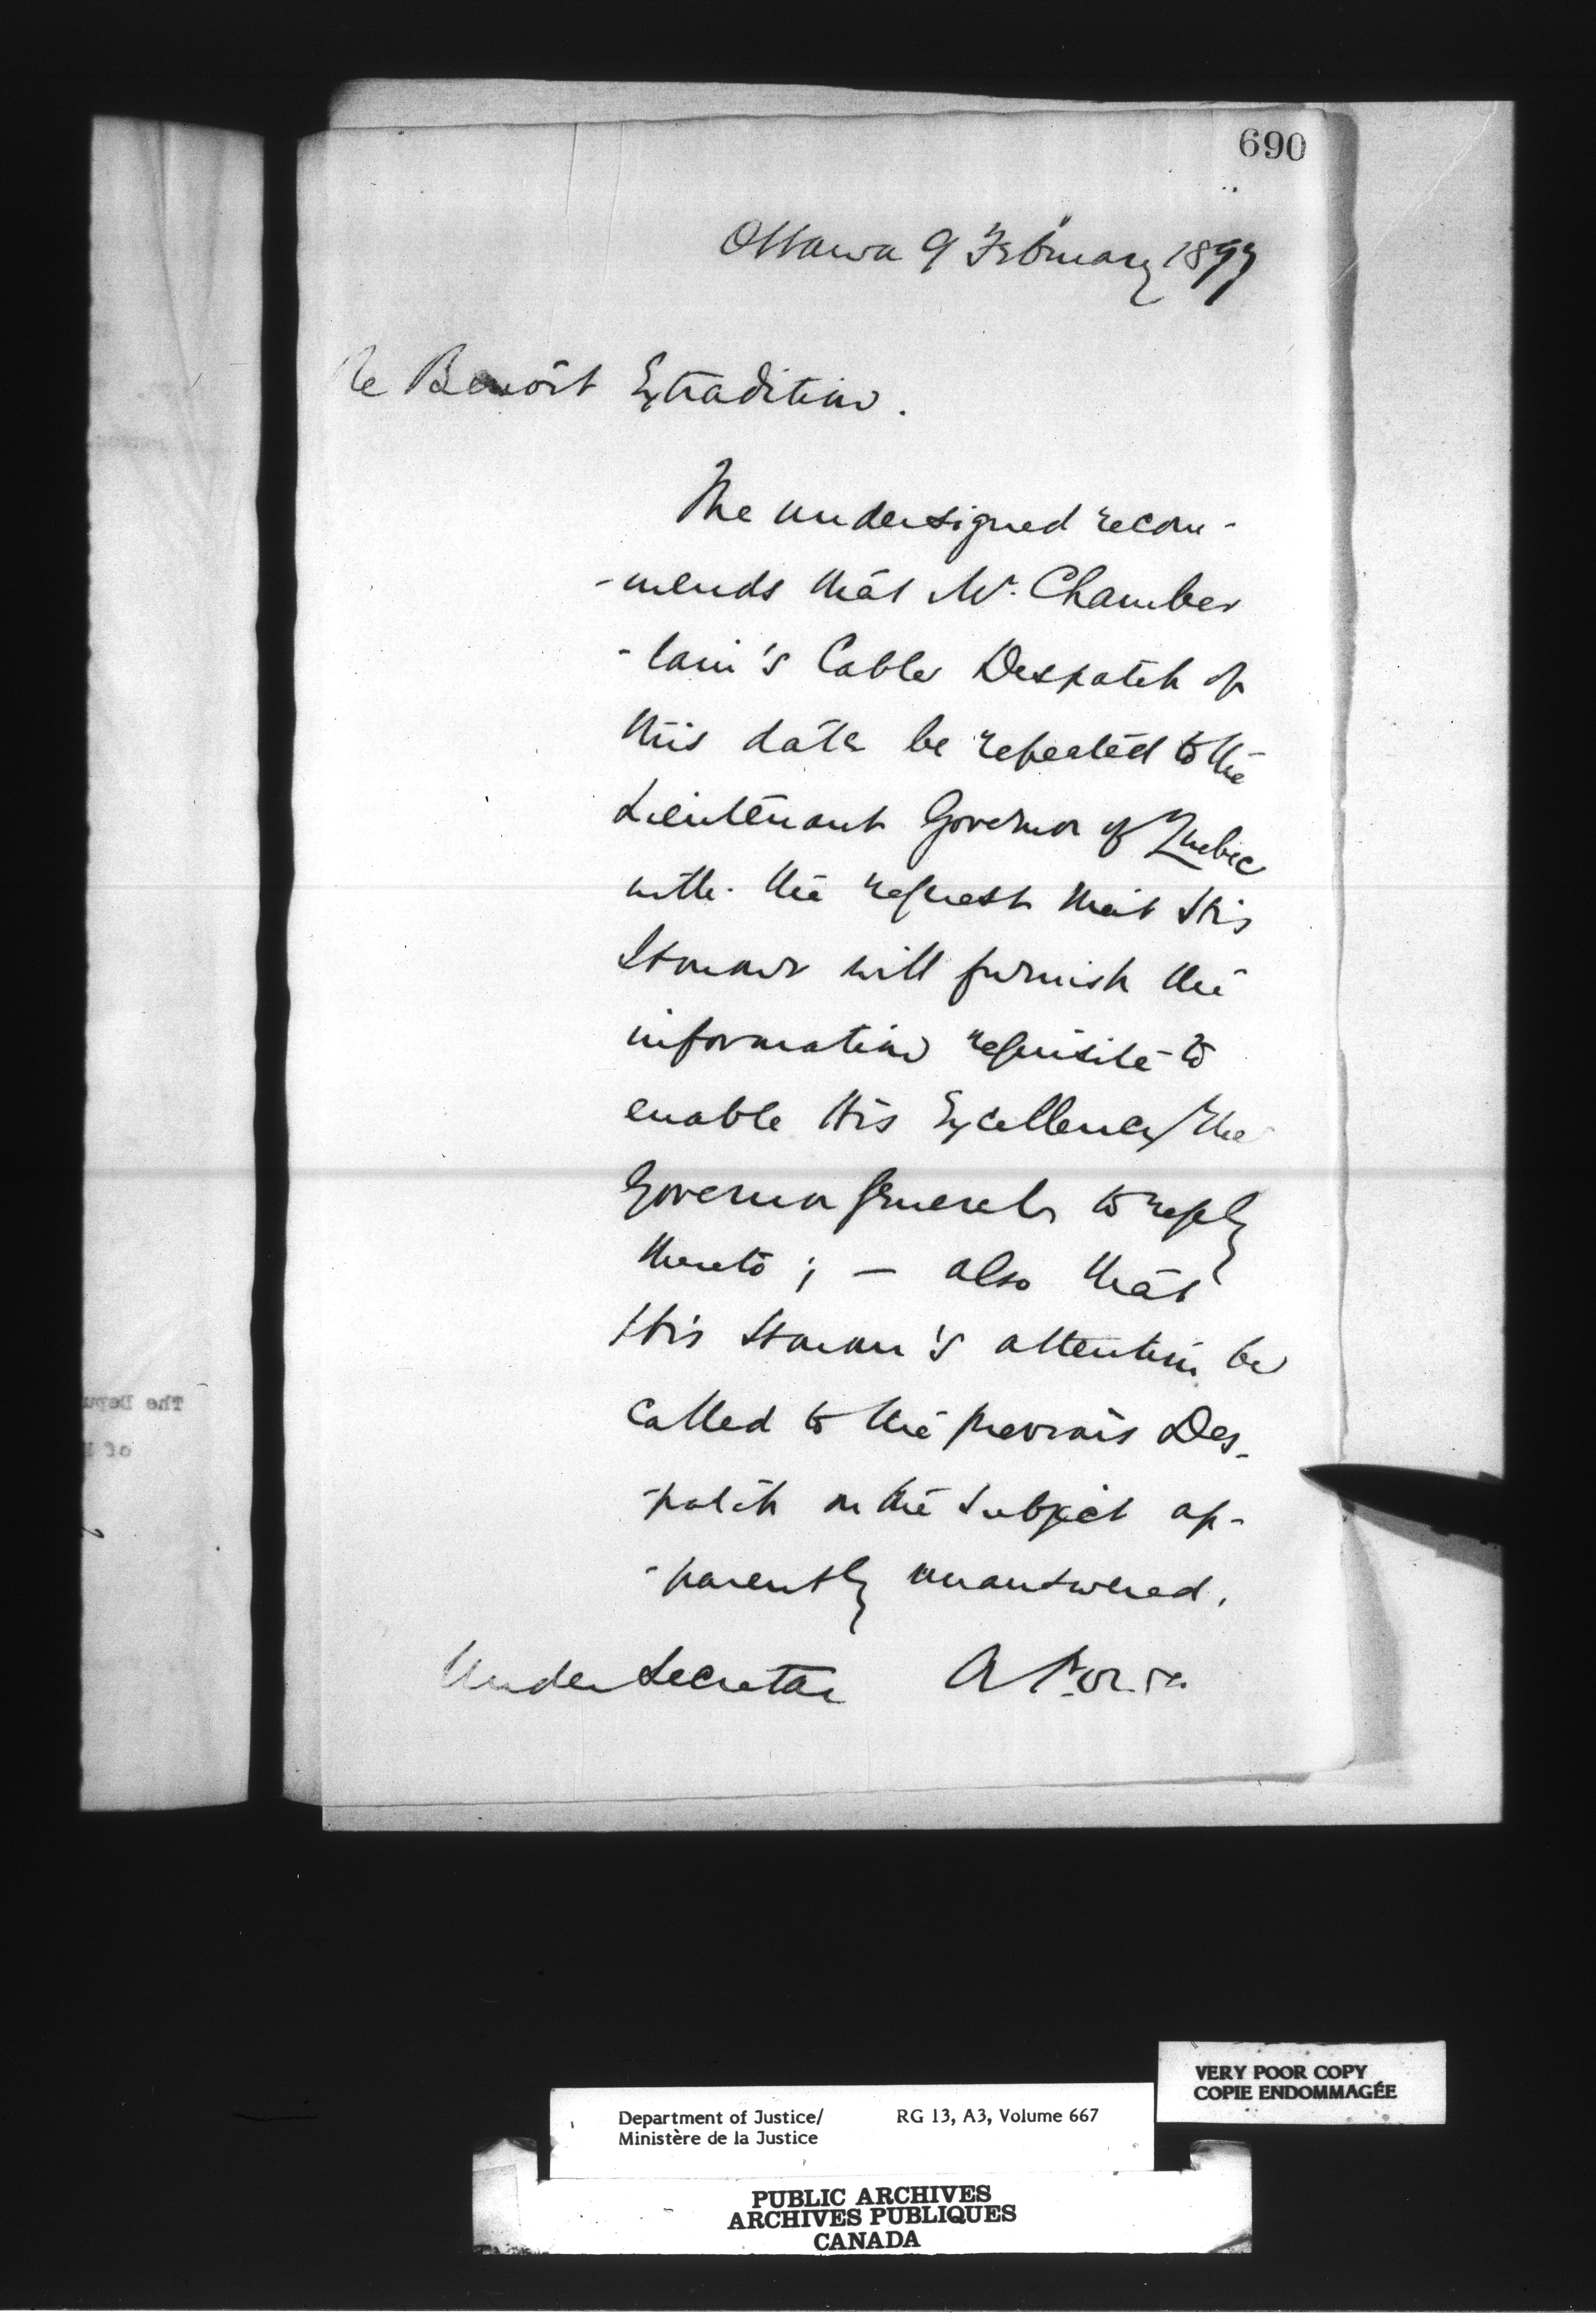 690
Ottawa 9 February 1899
Re Benoit Extradition.
The undersigned recom-
-mends that Mr. Chamber
-lain's Cable Despatch of
this date be repeated to the
Lieutenant Governor of Quebec
with the request that His
Honour will furnish the
information requisite to
enable His Excellency the
Governor General to reply
thereto ; — also that
His Honour's attention be
called to the previous Des-
-patch on the subject ap-
-parently unanswered.
Under Secretary A Power
The Depu
of
Department of Justice/
Ministère de la Justice
RG 13, A3, Volume 667
VERY POOR COPY
COPIE ENDOMMAGÉE
PUBLIC ARCHIVES
ARCHIVES PUBLIQUES
CANADA